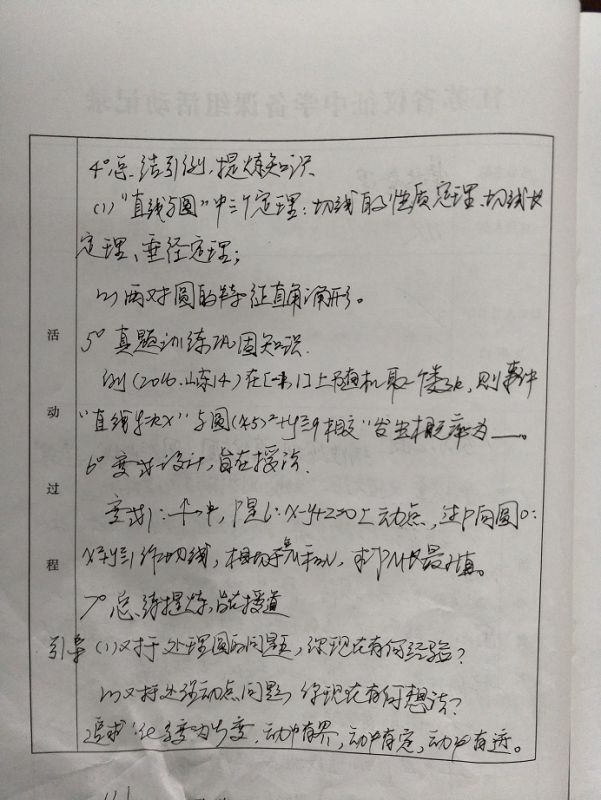 4° 总结引例，提炼知识
(1)“直线与圆”中三个定理：切线的性质定理、切线长
定理、垂径定理；
(2) 两对圆的特征直角三角形。
活
5° 真题训练巩固知识.
例 (2016.山东14) 在[-1,1]上随机取一个数k，则事件
动
“直线y=kx”与圆(x-5)²+y²=9相交”发生概率为__。
6° 变式设计，旨在授法.
过
变式1：，P是l：x-y+2=0上动点，过P向圆O：
程
x²+y²=1作切线，切于M和N，求PM长最值。
7° 总结提炼，旨在授道
引导 (1)对于处理圆的问题，你现在有何经验？
(2)对于处理动点问题，你现在有何想法？
追求：化多变为少变，动中有界，动中有定，动中有迹。